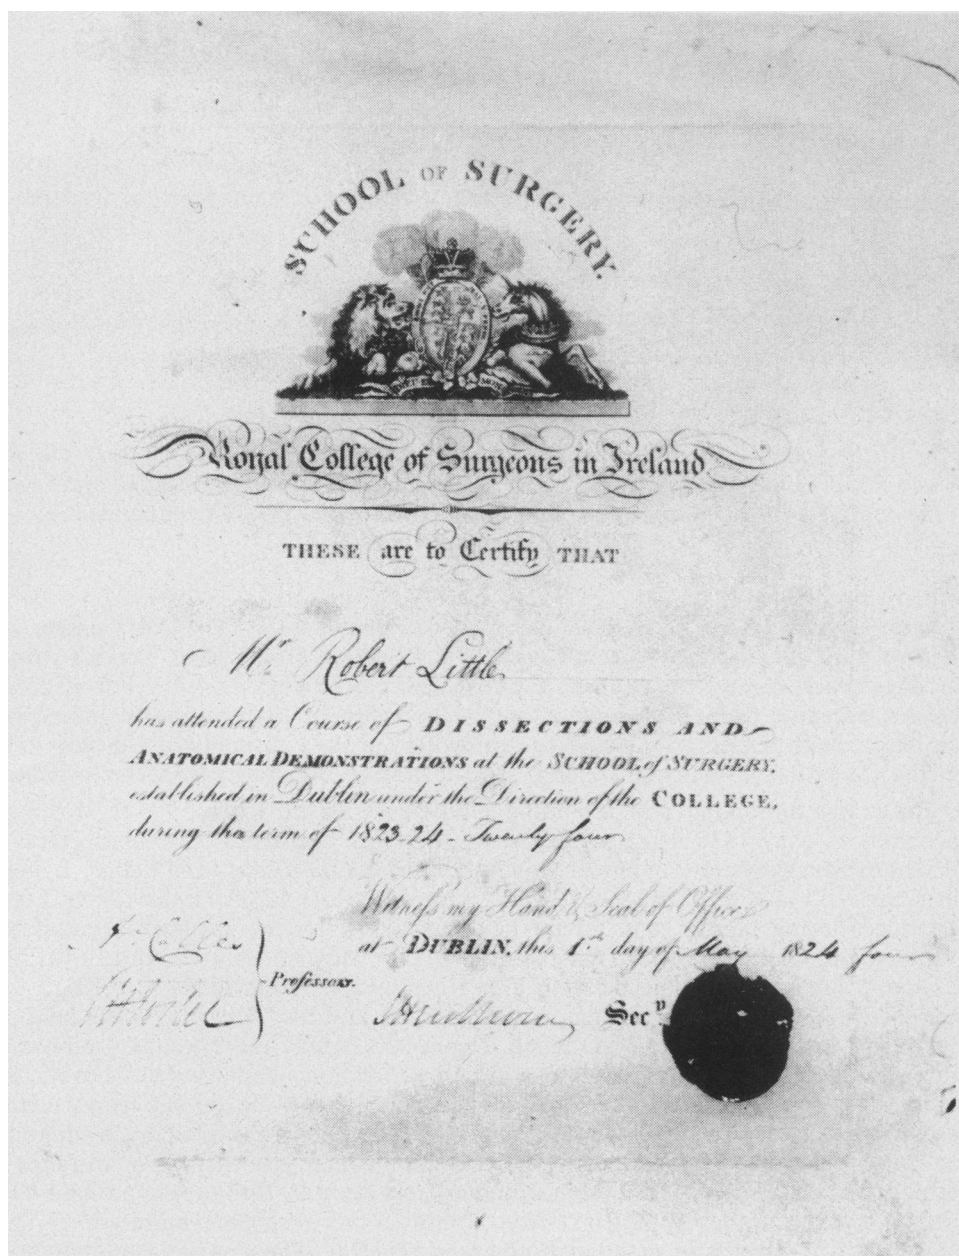 SCHOOL OF SURGERY.
Royal College of Surgeons in Ireland
THESE are to Certify THAT
Mr. Robert Little
has attended a Course of DISSECTIONS AND
ANATOMICAL DEMONSTRATIONS at the SCHOOL of SURGERY,
established in Dublin under the Direction of the COLLEGE,
during the term of 1823-24 - Twenty four
Witness my Hand & Seal of Office
at DUBLIN, this 1st day of May 1824 four
Colles
Professors.
Secy.